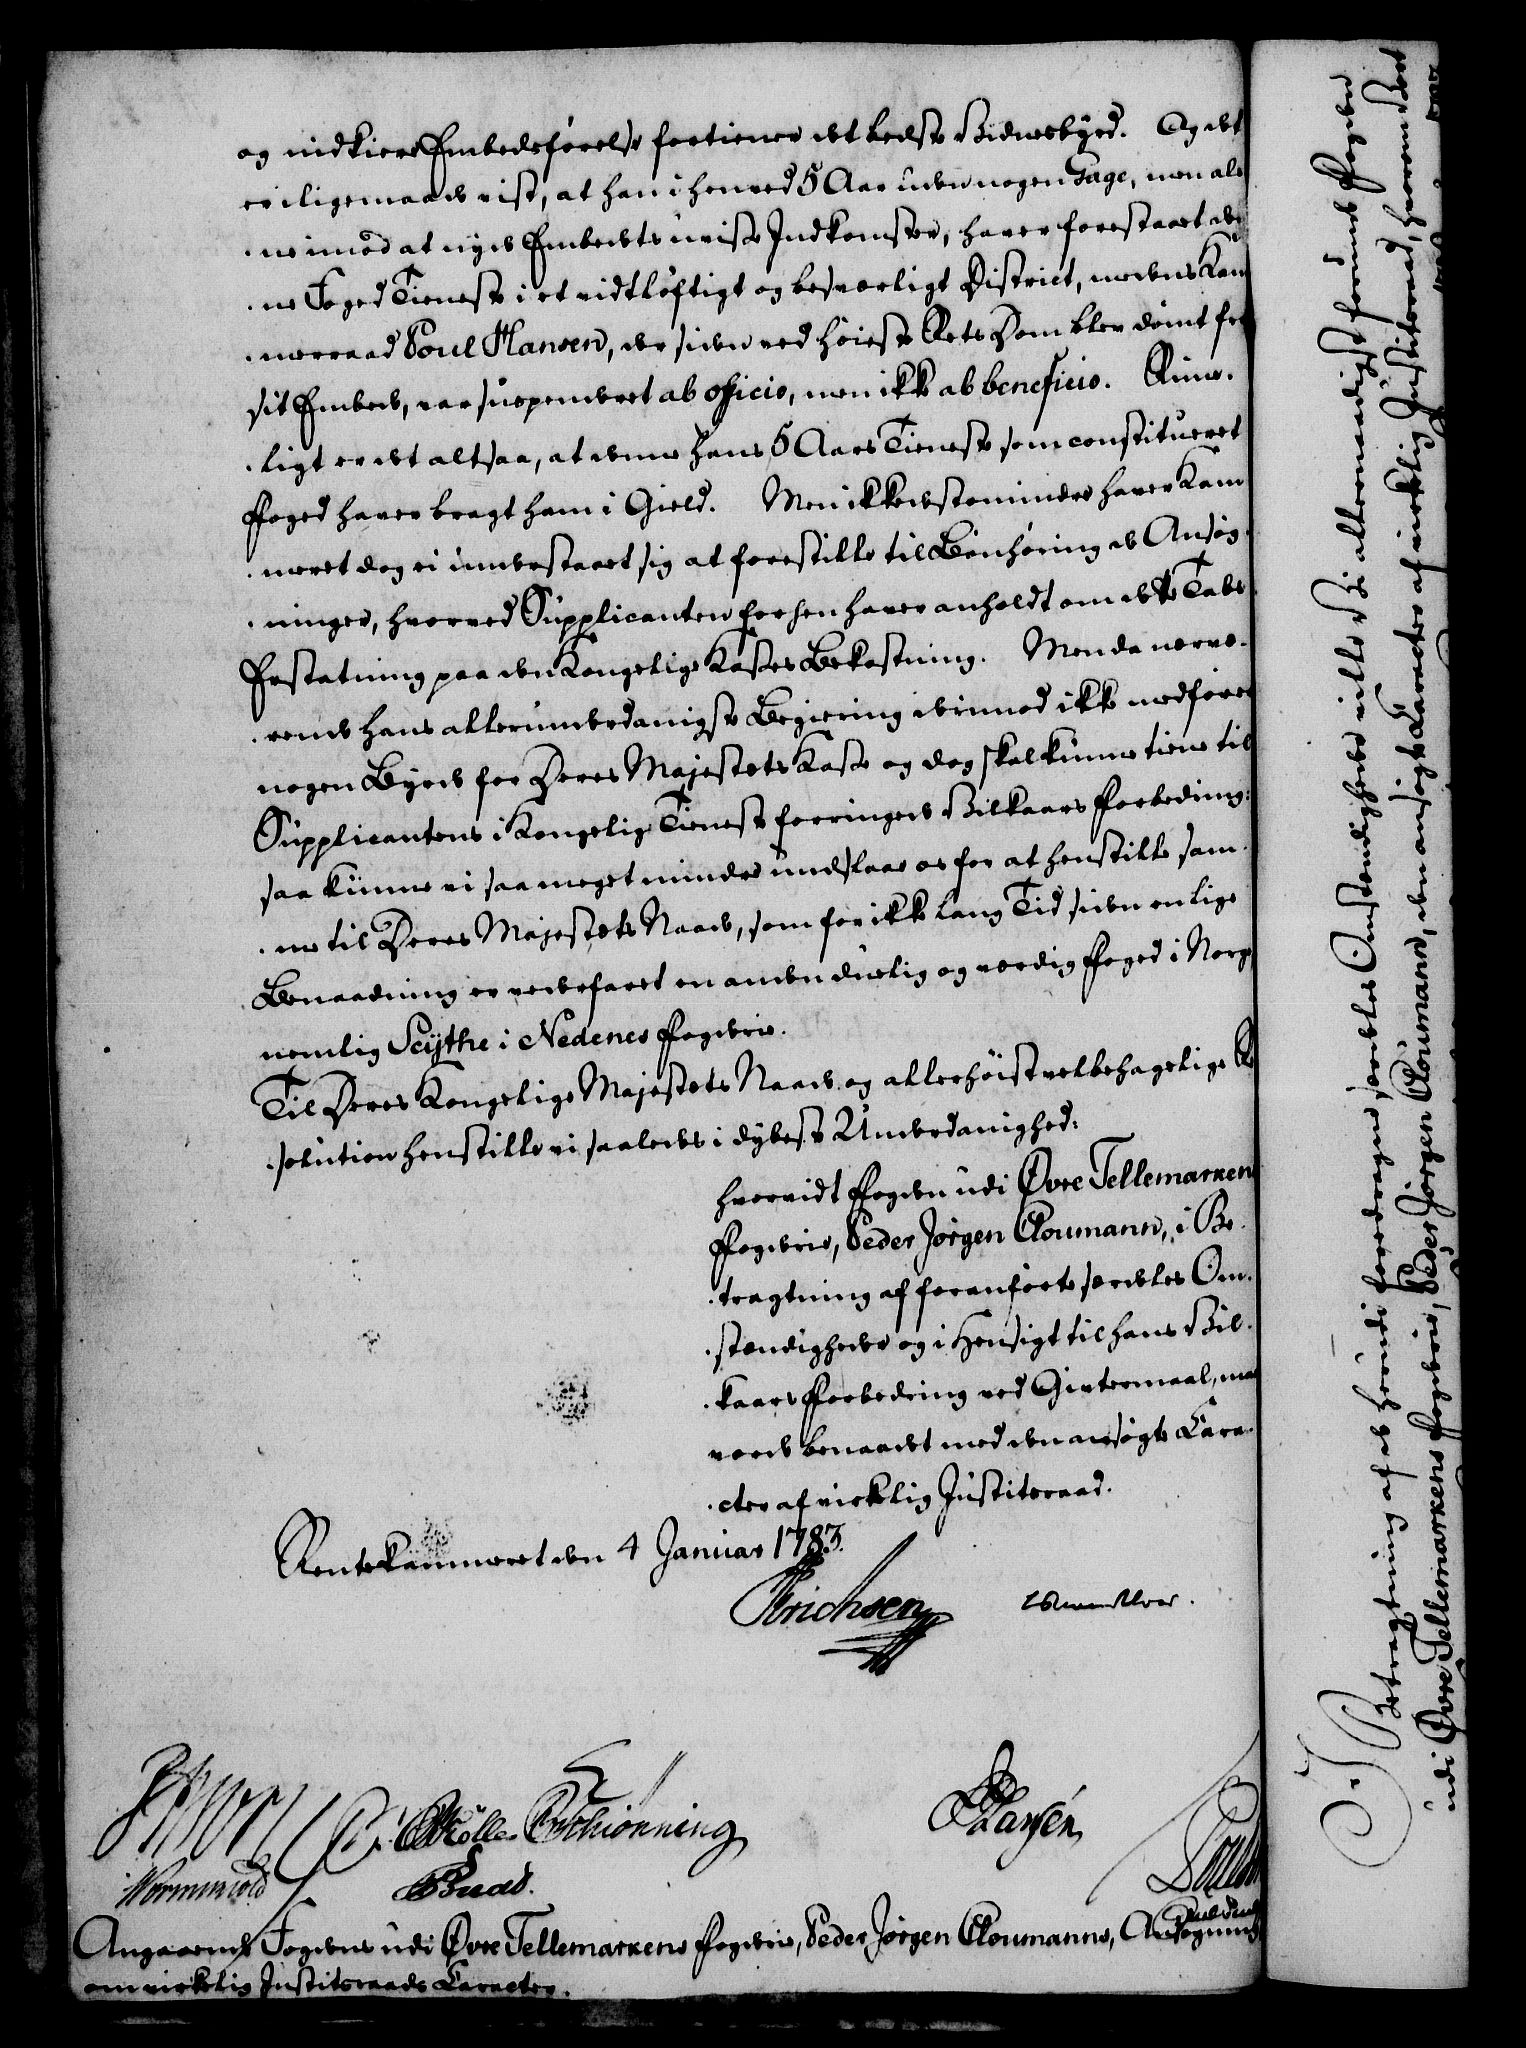 og nidkiere Embedsførelse fortiener det bedste Vidnesbyrd. Og det
er iligemaade vist, at han i henved 5 Aar uden nogen Gage, men ale
ne imod at nyde Embedets uvisse Indkomster, haver forestaaet den
ne Foged Tieneste i et vidtløftigt og besværligt District, medens Kam
merraad Poul Hansen, der siden ved Høieste Rets Dom blev dømt fra
sit Embede, var suspenderet ab officio, men ikke ab beneficio. Rime-
ligt er det altsaa, at denne hans 5 Aars Tieneste som constitueret
Foged haver bragt ham i Gield. Men ikke destomindre haver Kam
meret dog ei understaaet sig at forestille til Bønhøring de Ansøg-
ninger, hvorved Supplicanten forhen haver anholdt om dette Tabs
Erstatning paa den Kongelige Kasses Bekostning. Men da nærvæ-
rende hans allerunderdanigste Begiering derimod ikke medfører
nogen Byrde for Deres Majestæts Kasse og dog skal kunne tiene til
Supplicantens i Kongelig Tieneste forringede Vilkaars Forbedring:
saa kunne vi saa meget mindre undslaae os for at henstille sam-
me til Deres Majestæts Naade, som for ikke lang Tid siden en lige
Benaadning er vederfaret en anden duelig og værdig Foged i Norge
nemlig Scythe i Nedenes Fogderie.
Til Deres Kongelige Majestæts Naade og allerhøistvelbehagelige Re
solution henstille vi saaledes i dybeste Underdanighed:
hvorvidt Fogden udi Øvre Tellemarkens
Fogderie, Peder Jørgen Cloumann, i Be-
tragtning af foranførte særdeles Om-
stændigheder og i Hensigt til hans Vil-
kaars Forbedring ved Giftermaal, maa
vorde benaadet med den ansøgte Cara-
cter af virkelig Justitsraad.
Rentekammeret den 4 Januar 1783.
Erichsen
Müller Schiønning Hansen
Wormskiold
Angaaende Fogdens udi Øvre Tellemarkens Fogderie, Peder Jørgen Cloumanns, Ansøgning
om virkelig Justitsraads Caracter.
I Betragtning af de herudi foredragne særdeles Omstændigheder ville Vi allernaadigst forunde Fogden
udi Øvre Tellemarkens Fogderie, Peder Jørgen Cloumann, den ansøgte Caracter af virkelig Justitsraad, hvorom